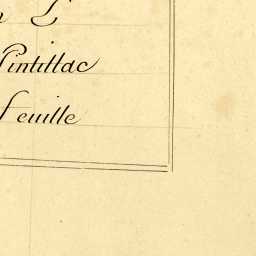 n L
Pintillac
feuille